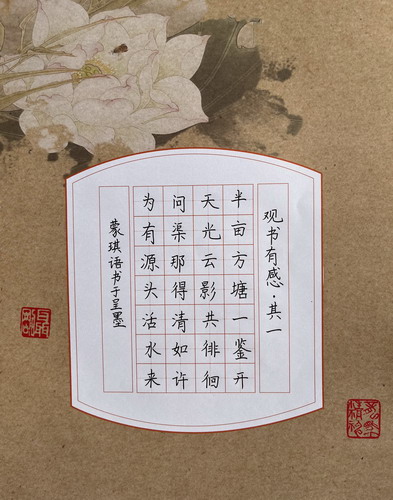 观书有感·其一
半亩方塘一鉴开
天光云影共徘徊
问渠那得清如许
为有源头活水来
蒙琪语书于呈墨